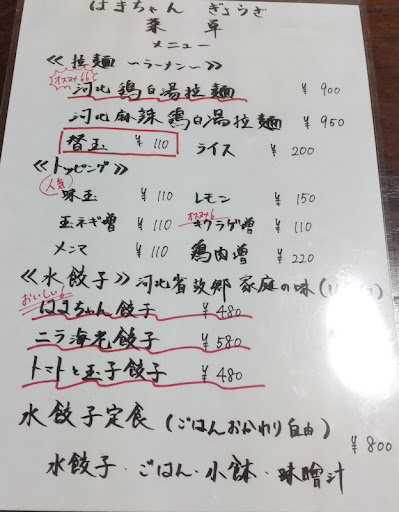 はまちゃん ぎょうざ
菜草
メニュー
≪拉麺 〜ラーメン〜≫
河北鶏白湯拉麺 ¥900
河北麻辣鶏白湯拉麺 ¥950
替玉 ¥110 ライス ¥200
≪トッピング≫
人気
味玉 ¥110 レモン ¥150
オススメ6
玉ネギ増 ¥110 キクラゲ増 ¥110
メンマ ¥110 鶏肉増 ¥220
≪水餃子≫河北省故郷 家庭の味
おいしい6
はまちゃん餃子 ¥480
ニラ海老餃子 ¥580
トマトと玉子餃子 ¥480
水餃子定食(ごはんおかわり自由) ¥800
水餃子・ごはん・小鉢・味噌汁